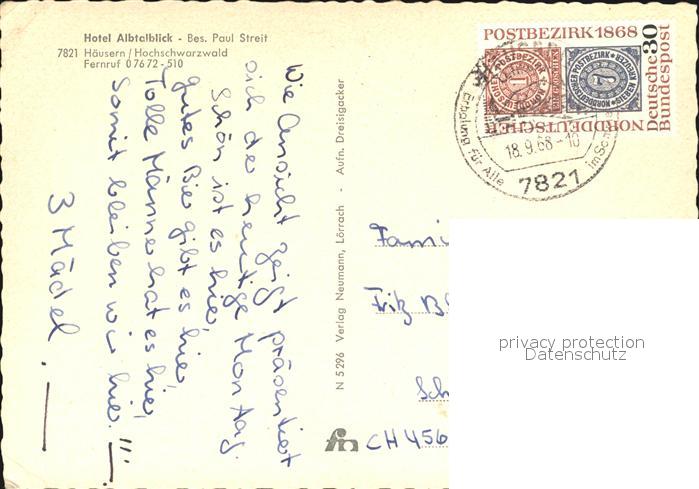 Hotel Albtalblick - Bes. Paul Streit
7821 Häusern/Hochschwarzwald
Fernruf 07672-510
Wie Ansicht zeigt präsentiert
sich der heutige Montag.
Schön ist es hier,
gutes Bier gibt es hier,
Tolle Männer hat es hier,
Somit bleiben wir hier.!!
3 Mädel.
N 5296 Verlag Neumann, Lörrach - Aufn. Dreisigacker
POSTBEZIRK 1868
NORDDEUTSCHER
Deutsche
Bundespost
30
Erholung für Alle
im Sch
18.9.68-10
7821
Fami
Fritz Bl
Sch
CH 456
privacy protection
Datenschutz